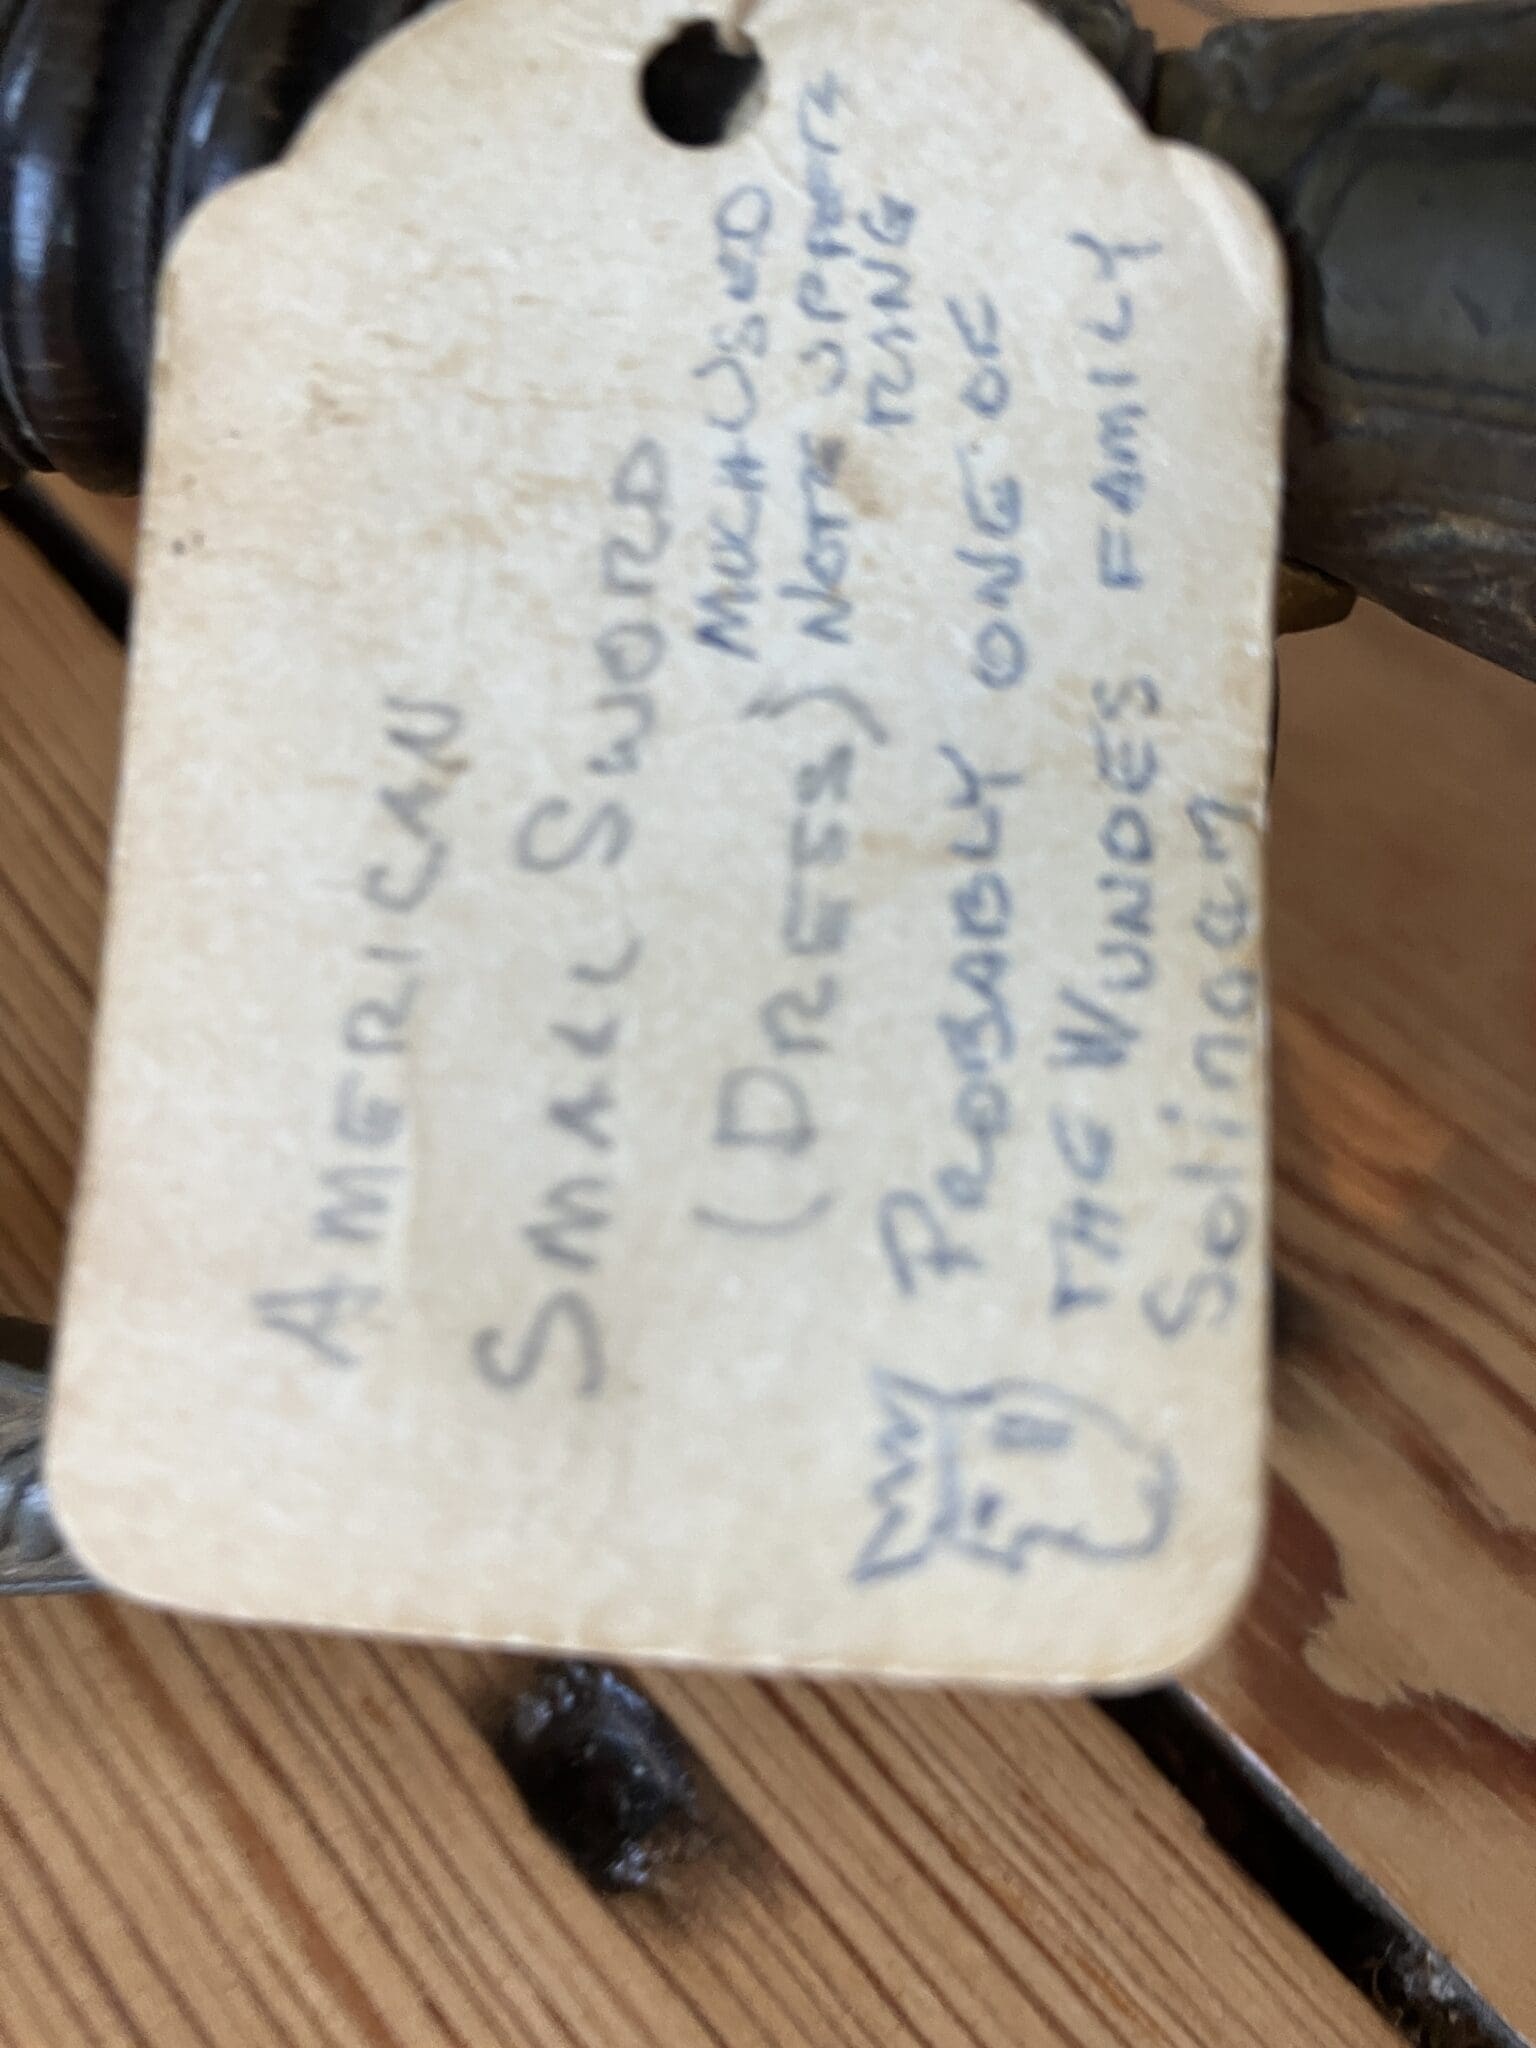 AMERICAN
SMALL SWORD
(DRESS)
MUCH USED
NOTE UPSETS
RING
PROBABLY ONE OF
THE WUNDES FAMILY
Solingen